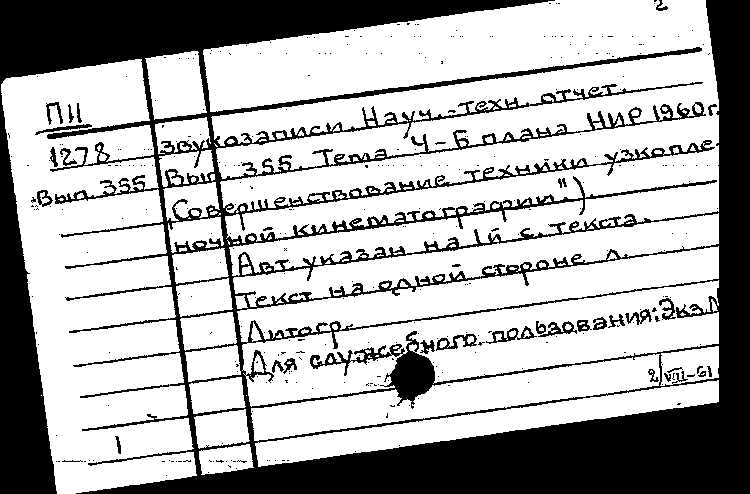 2
П11
1278
Вып. 355
Звукозаписи. Науч.-техн. отчет.
Вып. 355. Тема Ч-Б плана НИР 1960г.
(Совершенствование техники узкопле-
ночной кинематографии").
Авт. указан на 1й с. текста.
Текст на одной стороне л.
Литогр.
Для служебного пользования: Экз.
2/VIII-61
1